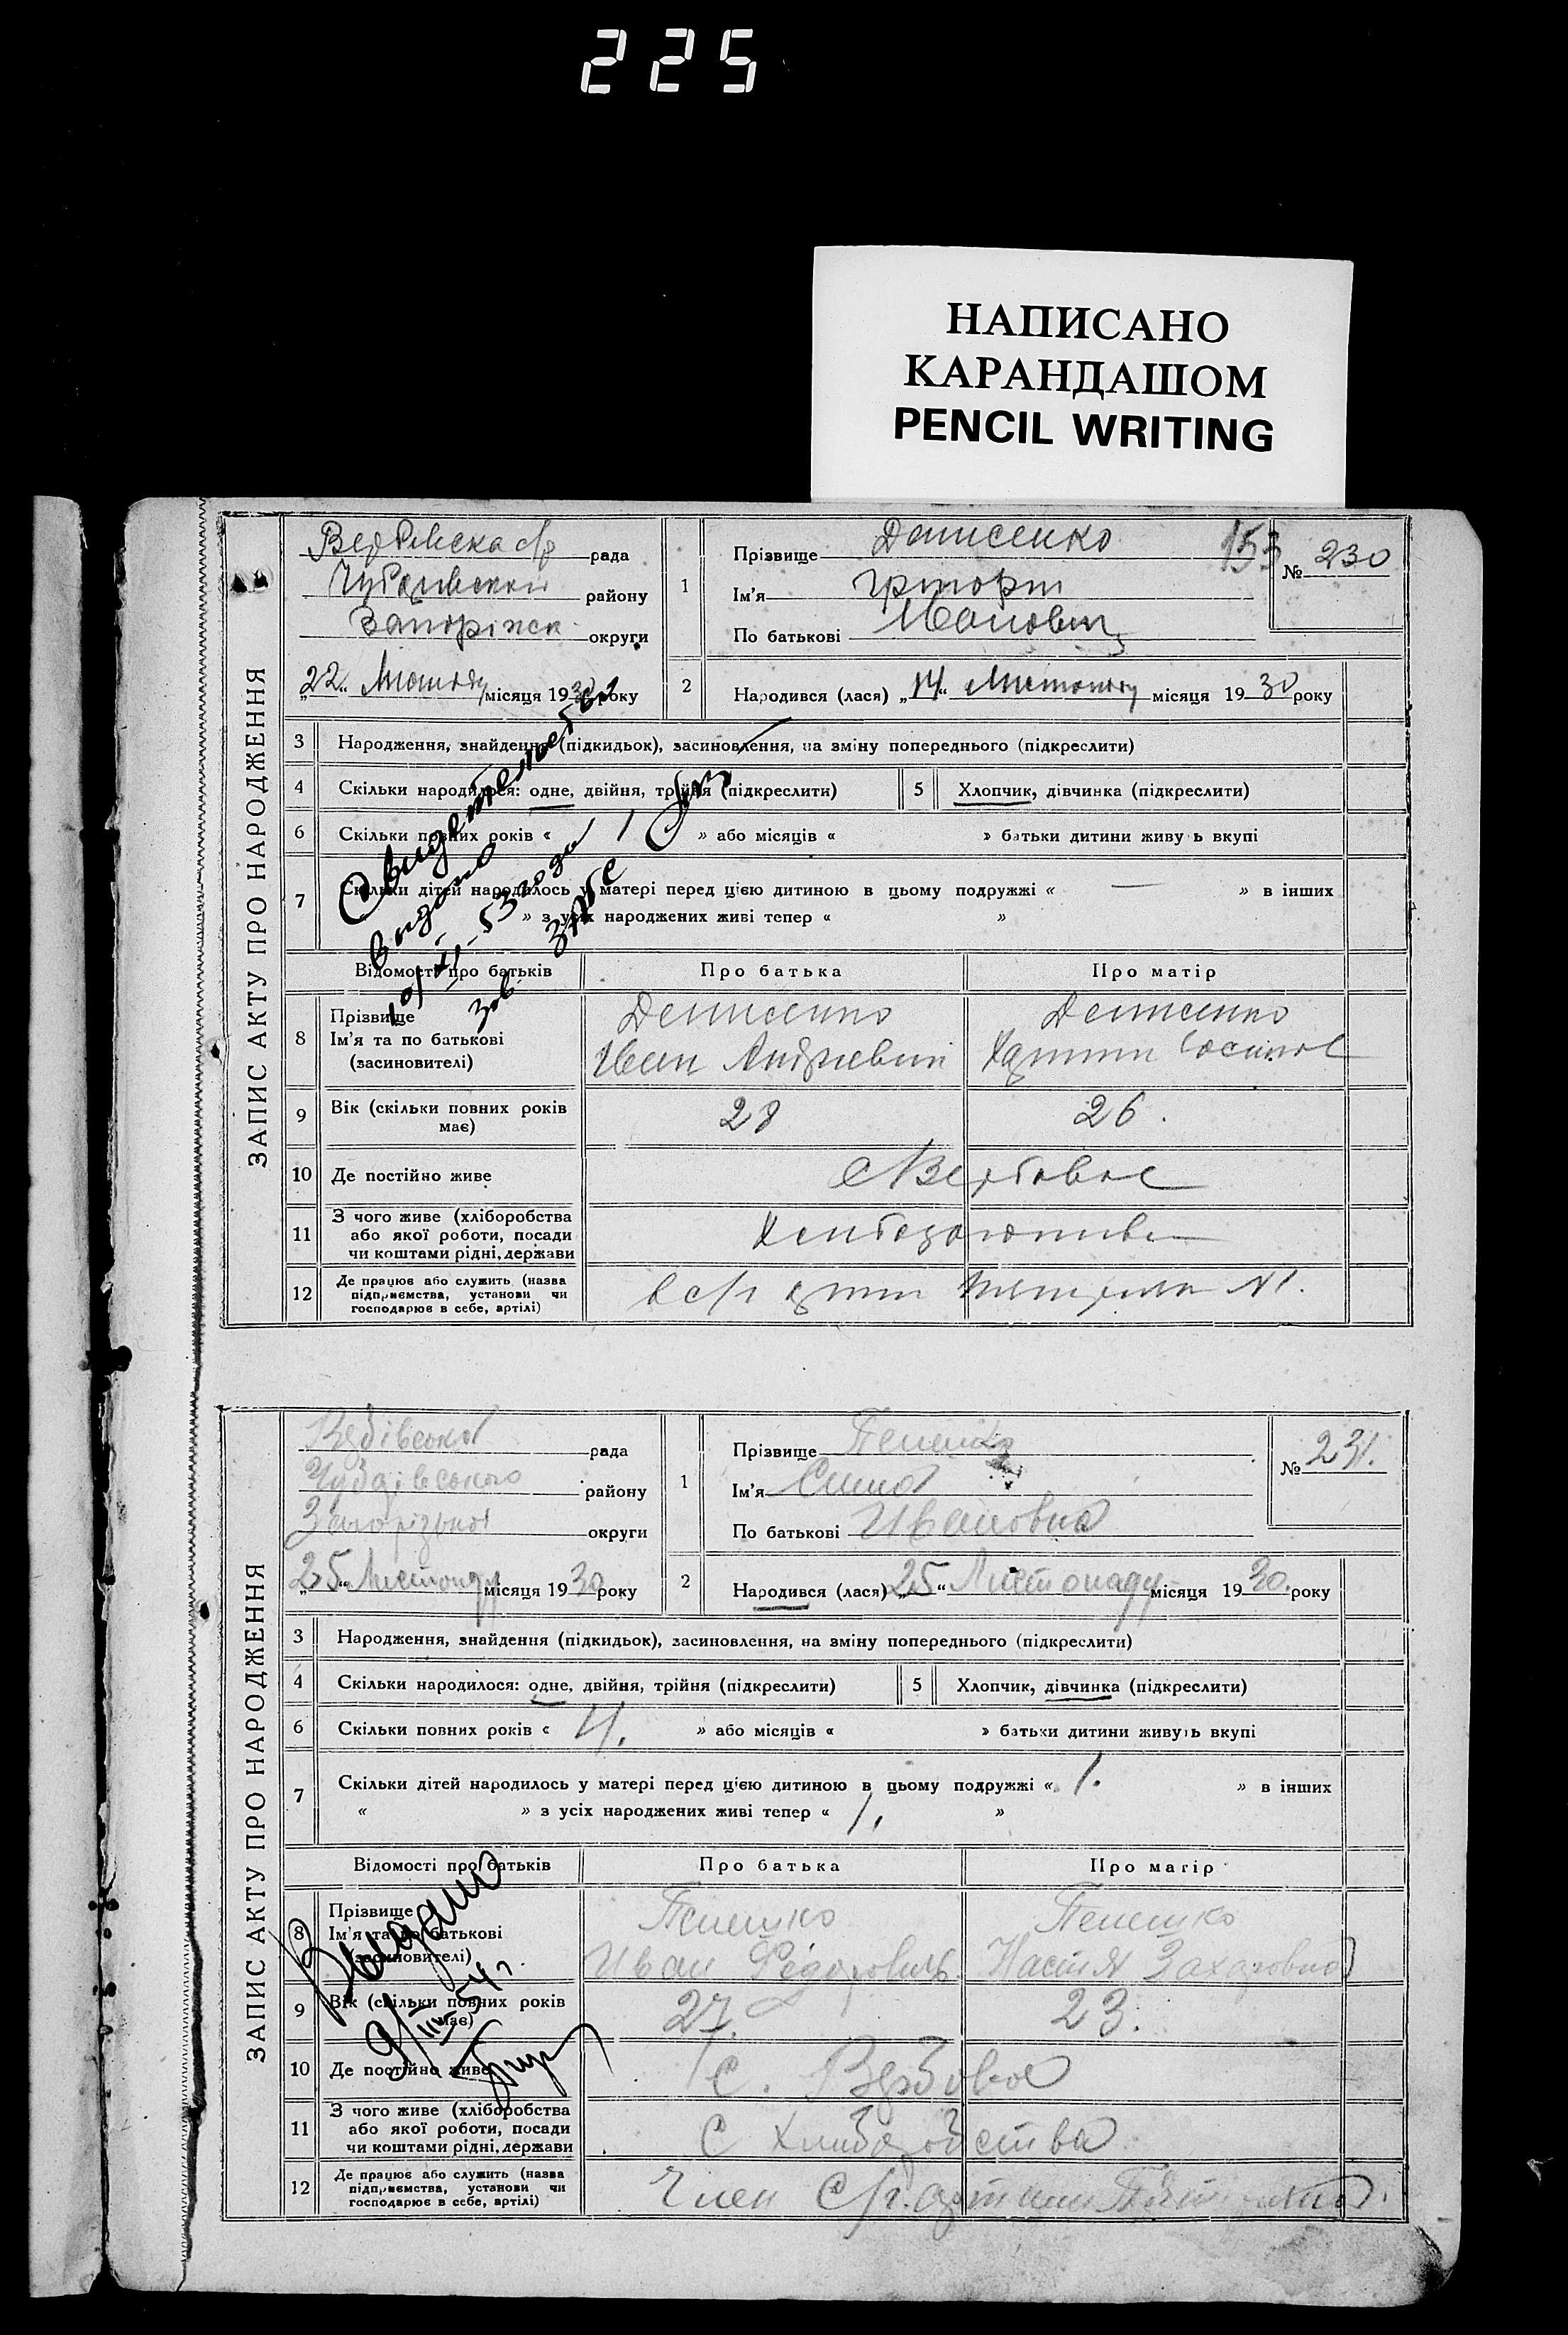 225
НАПИСАНО
КАРАНДАШОМ
PENCIL WRITING
ЗАПИС АКТУ ПРО НАРОДЖЕННЯ
рада
району
округи
„22“ місяця 1930 року
1
Прізвище Денисенко
153
№ 230
Ім'я Григорій
По батькові Иванович
2
Народився (лася) „14“ Листопаду місяця 1930 року
3 Народження, знайдення (підкидьок), засиновлення, на зміну попереднього (підкреслити)
4 Скільки народилося: одне, двійня, трійня (підкреслити)
5 Хлопчик, дівчинка (підкреслити)
6 Скільки повних років « » або місяців « » батьки дитини живуть вкупі
7 Скільки дітей народилось у матері перед цією дитиною в цьому подружжі « — » в інших
» з усіх народжених живі тепер « »
Свидетельство
выдано
10/XI-53 года
Відомості про батьків
Про батька
Про матір
8 Прізвище
Ім'я та по батькові
(засиновителі)
Денисенко
Иван Андриевич
Денисенко
9 Вік (скільки повних років має)
28
26.
10 Де постійно живе
с Вербовое
11 З чого живе (хліборобства
або якої роботи, посади
чи коштами рідні, держави
12 Де працює або служить (назва
підприємства, установи чи
господарює в себе, артілі)
ЗАПИС АКТУ ПРО НАРОДЖЕННЯ
рада
Чубарівського району
Запорізької округи
„25“ Листопаду місяця 1930 року
1
Прізвище Пепешко
№ 231.
Ім'я
По батькові Ивановна
2
Народився (лася) „25“ Листопаду місяця 1930. року
3 Народження, знайдення (підкидьок), засиновлення, на зміну попереднього (підкреслити)
4 Скільки народилося: одне, двійня, трійня (підкреслити)
5 Хлопчик, дівчинка (підкреслити)
6 Скільки повних років « 4. » або місяців « » батьки дитини живуть вкупі
7 Скільки дітей народилось у матері перед цією дитиною в цьому подружжі « 1. » в інших
« » з усіх народжених живі тепер « 1. »
Відомості про батьків
Про батька
Про матір
Выдано
9/III-54 г
8 Прізвище
Ім'я та по батькові
(засиновителі)
Пепешко
Иван Федорович
Пепешко
Настя Захаровна
9 Вік (скільки повних років має)
27.
23.
10 Де постійно живе
с. Вербове
11 З чого живе (хліборобства
або якої роботи, посади
чи коштами рідні, держави
С Хлиборобства
12 Де працює або служить (назва
підприємства, установи чи
господарює в себе, артілі)
Член С/г. артили